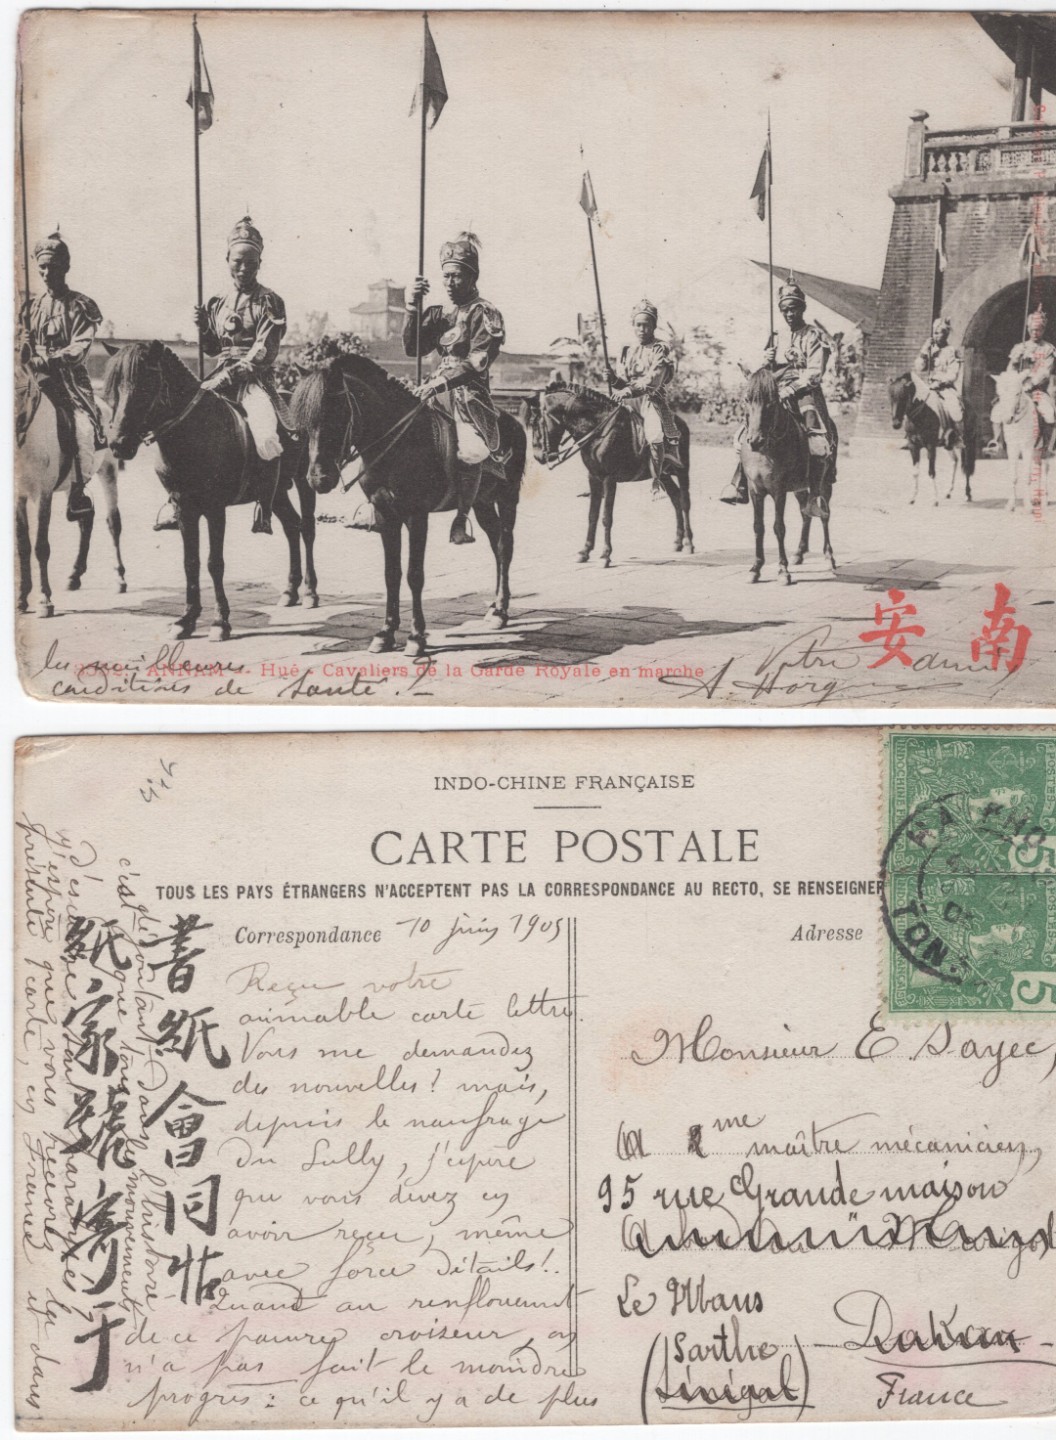 ANNAM - Huê - Cavaliers de la Garde Royale en marche
les meilleures
conditions de santé !
Votre ami
安 南
INDO-CHINE FRANÇAISE
CARTE POSTALE
TOUS LES PAYS ÉTRANGERS N'ACCEPTENT PAS LA CORRESPONDANCE AU RECTO, SE RENSEIGNER
Correspondance 10 juin 1905
Adresse
Reçu votre
aimable carte lettre.
Vous me demandez
des nouvelles ? mais,
depuis le naufrage
du Sully, j'espère
que vous devez en
avoir reçu, même
avec force détails !.
Quant au renflouement
de ce pauvre croiseur, on
n'a pas fait le moindre
progrès : ce qu'il y a de plus
c'est que tous les mouvements
J'espère que vous recevrez la
présente carte, en France et dans
書紙會同
紙家號
5
5
TON
Monsieur E Sayec,
maître mécanicien,
95 rue Grande maison
Le Mans
(Sarthe
Sénégal)
Dakar
France